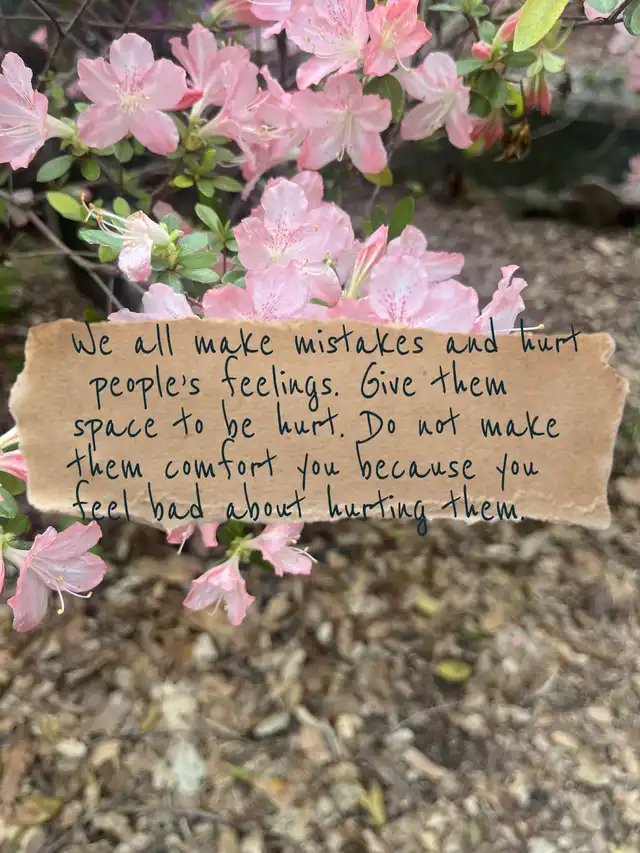 We all make mistakes and hurt
people's feelings. Give them
space to be hurt. Do not make
them comfort you because you
feel bad about hurting them.